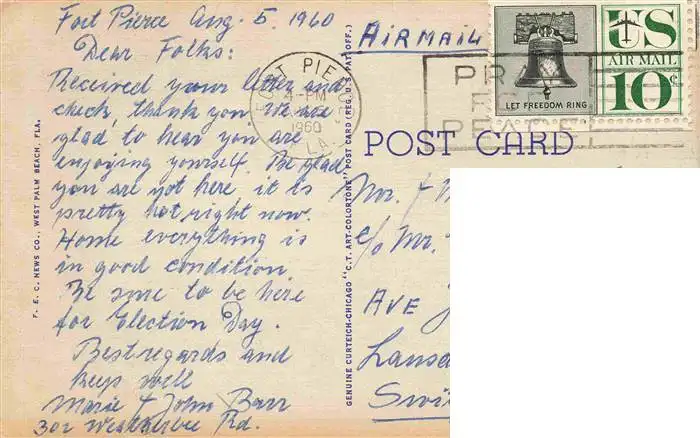 Fort Pierce Aug. 5, 1960
Dear Folks:
Received your letter and
check, thank you. We are
glad to hear you are
enjoying yourself. Be glad
you are not here it is
pretty hot right now.
Home everything is
in good condition.
Be sure to be here
for Election Day.
Best regards and
keep well
Marie & John Barr
302 Weatherbee Rd.
F. E. C. NEWS CO., WEST PALM BEACH, FLA.
GENUINE CURTEICH-CHICAGO "C. T. ART-COLORTONE" POST CARD (REG. U. S. PAT. OFF.)
AIRMAIL
FORT PIERCE
4-PM
1960
FLA.
PRAY
FOR
PEACE
LET FREEDOM RING
US
AIR MAIL
10¢
POST CARD
Mr. &
c/o Mr.
AVE